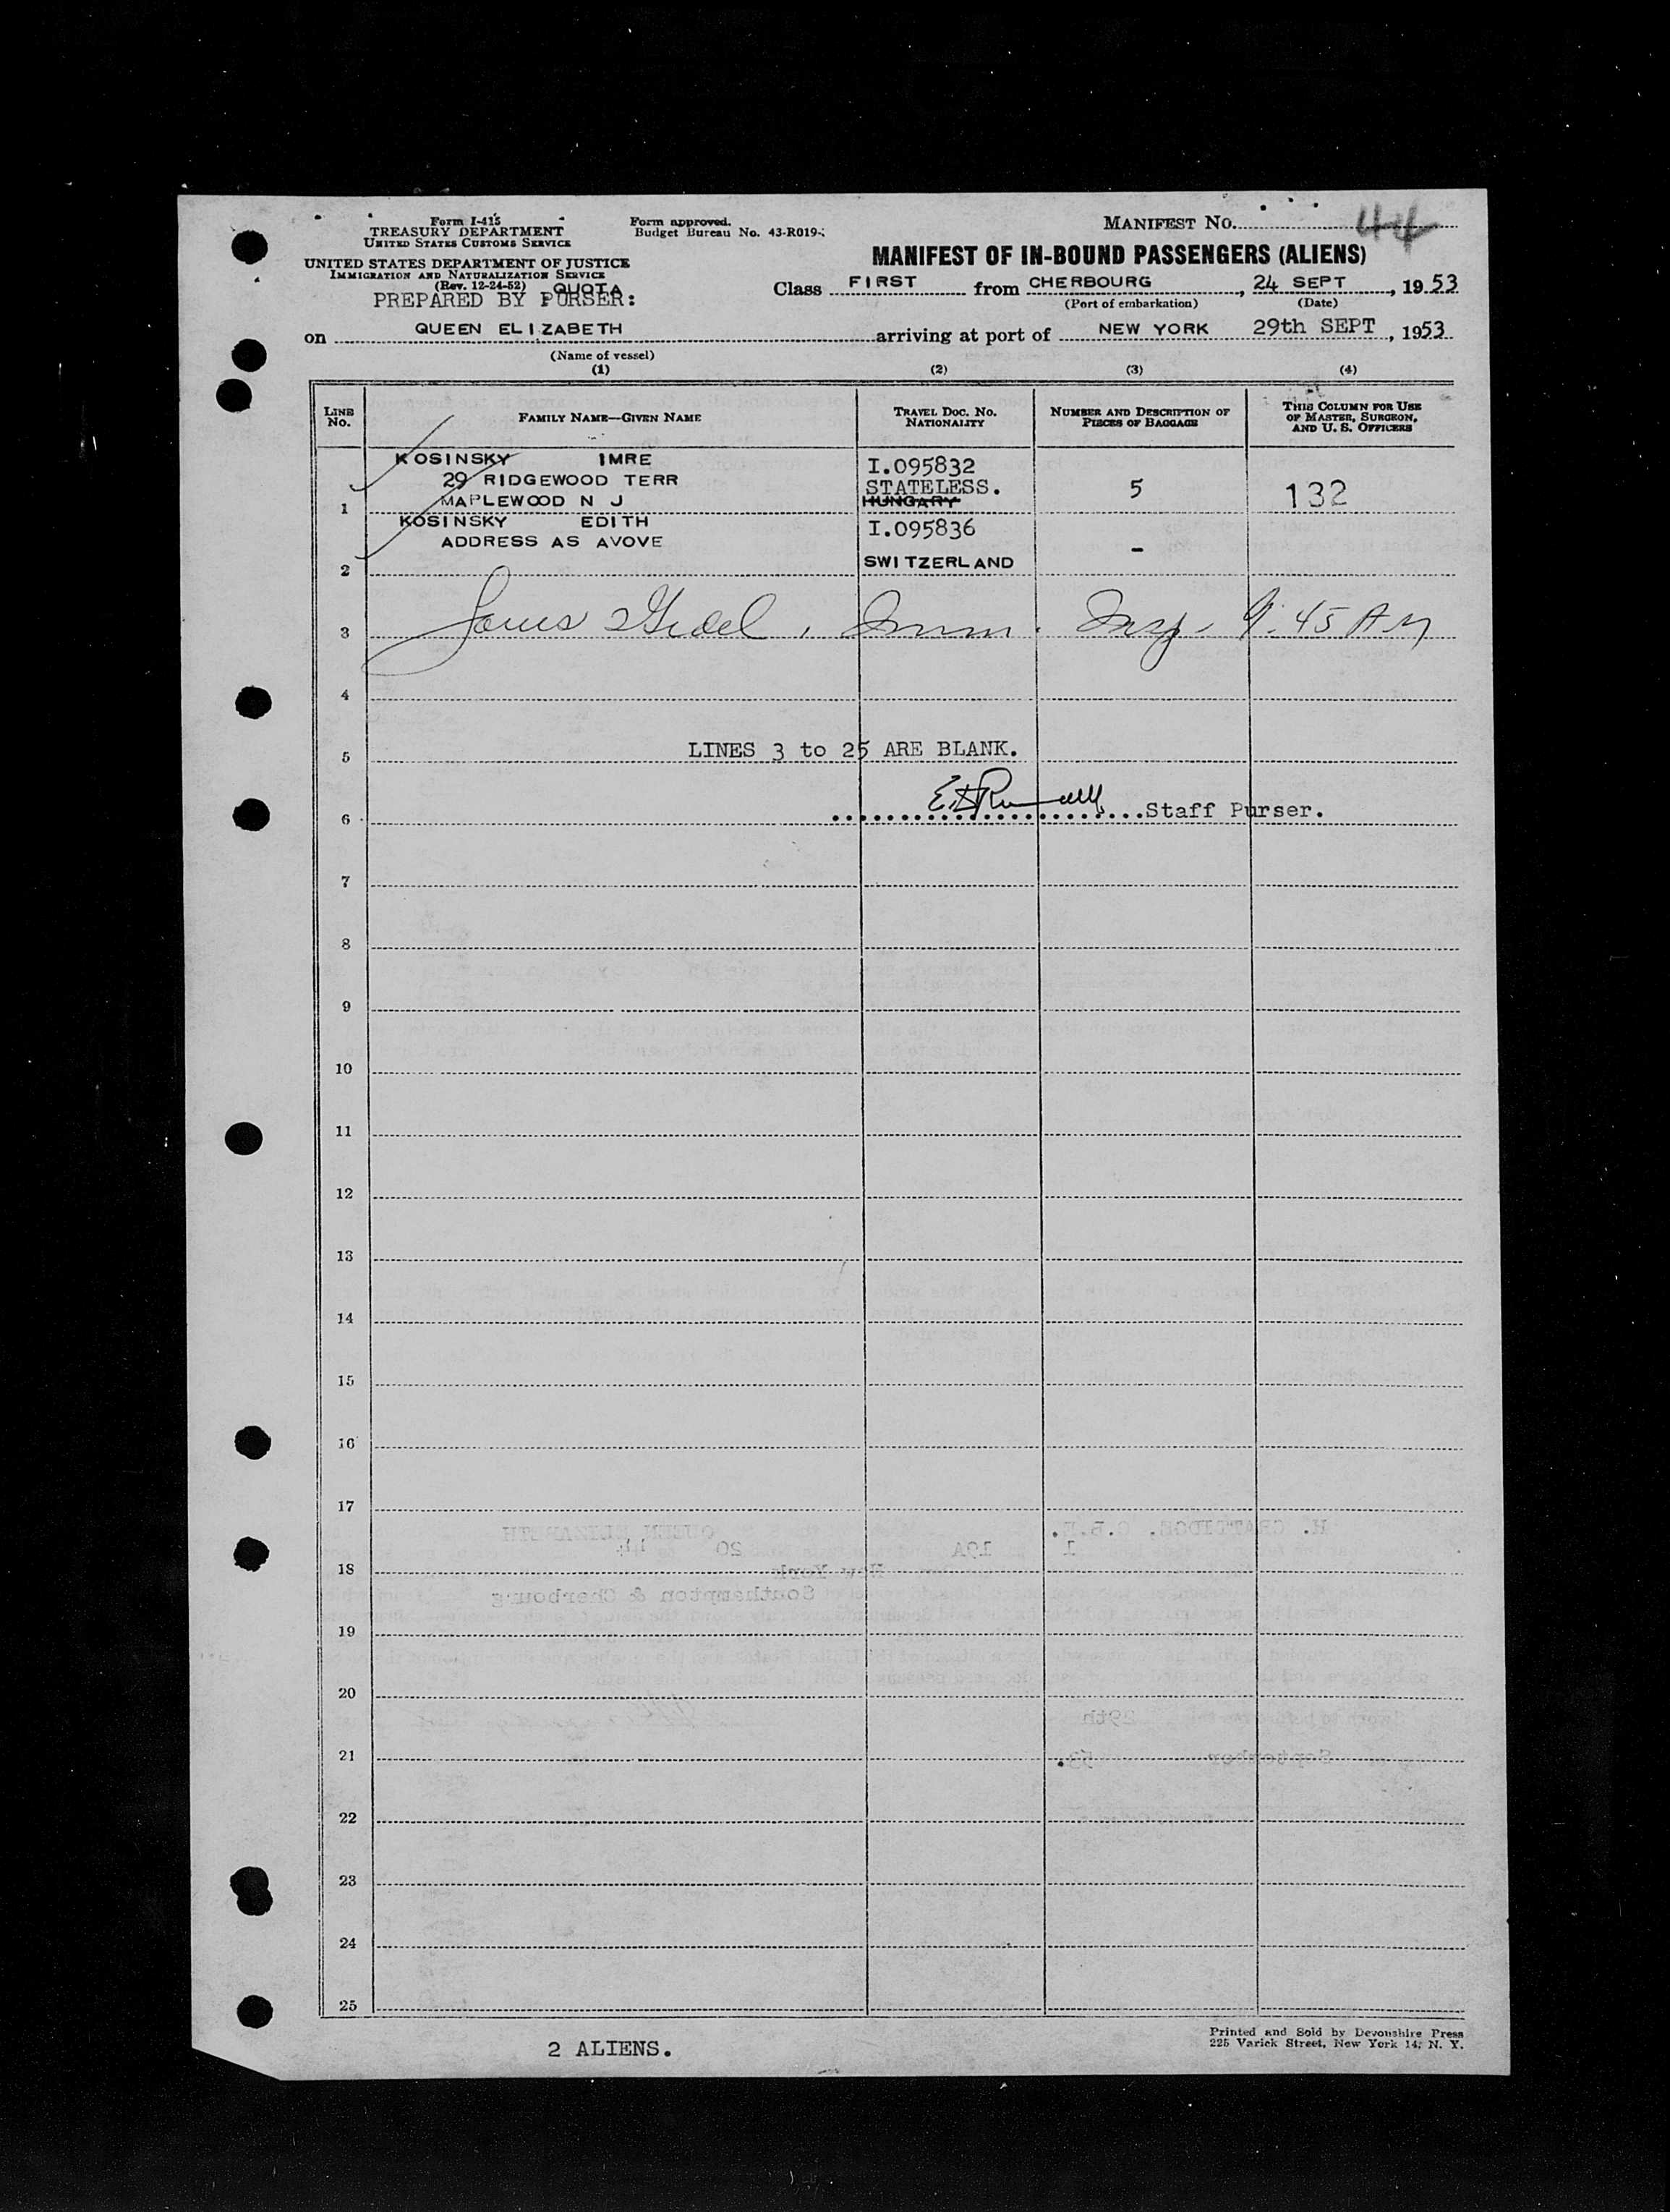 Form I-415
TREASURY DEPARTMENT
UNITED STATES CUSTOMS SERVICE
UNITED STATES DEPARTMENT OF JUSTICE
IMMIGRATION AND NATURALIZATION SERVICE
(Rev. 12-24-52) QUOTA
PREPARED BY PURSER:
Form approved.
Budget Bureau No. 43-R019-
MANIFEST NO. 44
MANIFEST OF IN-BOUND PASSENGERS (ALIENS)
Class FIRST from CHERBOURG, 24 SEPT, 1953
(Port of embarkation) (Date)
on QUEEN ELIZABETH arriving at port of NEW YORK 29th SEPT, 1953
(Name of vessel)
(1) (2) (3) (4)
LINE NO. FAMILY NAME—GIVEN NAME TRAVEL DOC. NO. NATIONALITY NUMBER AND DESCRIPTION OF PIECES OF BAGGAGE THIS COLUMN FOR USE OF MASTER, SURGEON, AND U. S. OFFICERS
KOSINSKY IMRE I.095832
29 RIDGEWOOD TERR STATELESS. 5 132
1 MAPLEWOOD N J HUNGARY
KOSINSKY EDITH I.095836
ADDRESS AS AVOVE
2 SWITZERLAND -
3 Imm. Insp. 9:45 AM
4
5 LINES 3 to 25 ARE BLANK.
6 Staff Purser.
7
8
9
10
11
12
13
14
15
16
17
H. GRATTIDGE. O.B.E. QUEEN ELIZABETH
1 19A 20 44
18 New York
Southampton & Cherbourg
19
20
29th
21 September 53.
22
23
24
25
2 ALIENS.
Printed and Sold by Devonshire Press
225 Varick Street, New York 14, N. Y.